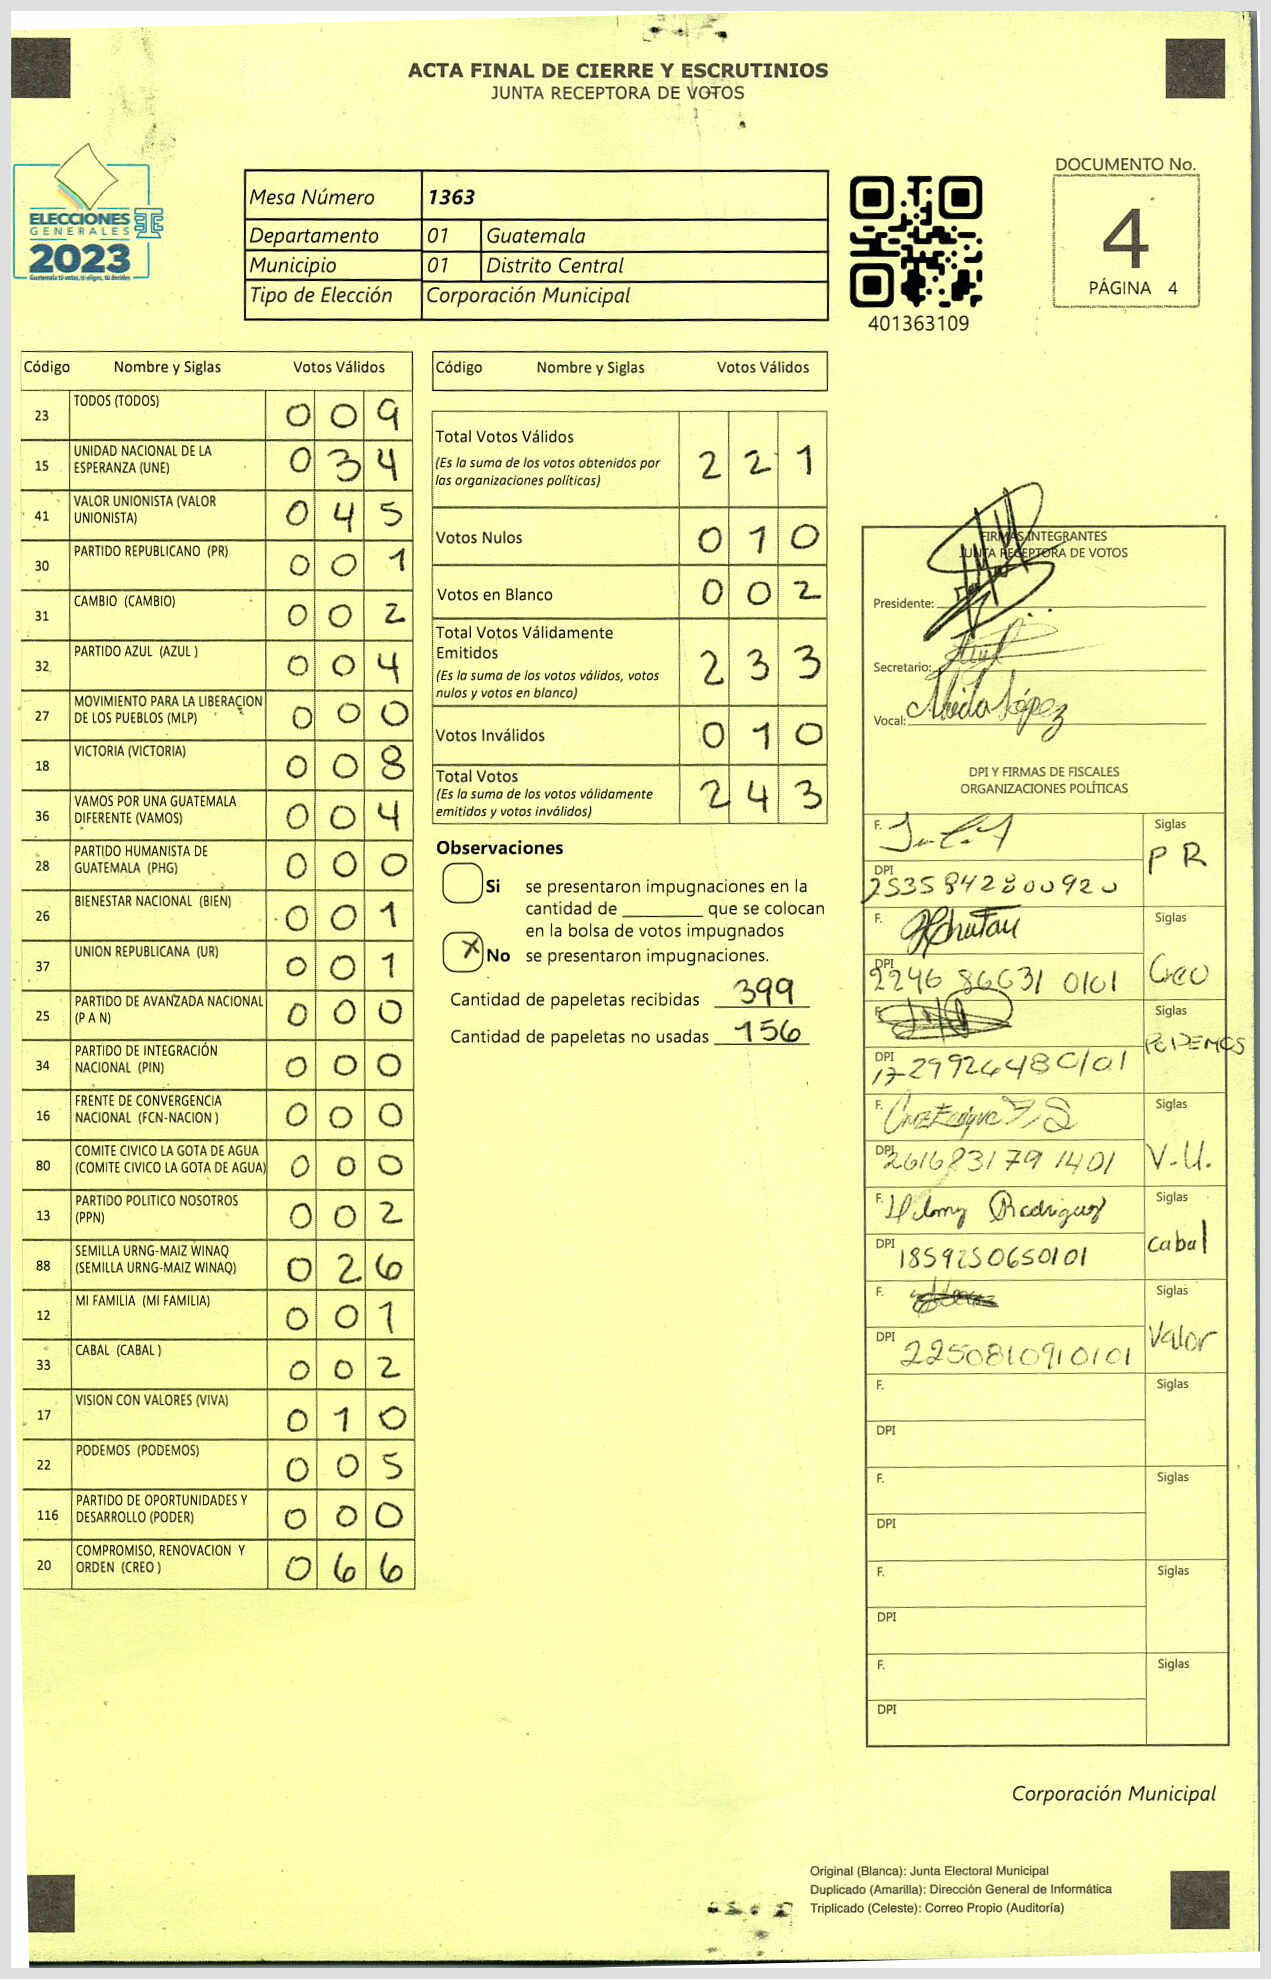 ACTA FINAL DE CIERRE Y ESCRUTINIOS
JUNTA RECEPTORA DE VOTOS
ELECCIONES
GENERALES
2023
Guatemala tú votas, tú eliges, tú decides
Mesa Número 1363
Departamento 01 Guatemala
Municipio 01 Distrito Central
Tipo de Elección Corporación Municipal
401363109
DOCUMENTO No.
4
PÁGINA 4
Código Nombre y Siglas Votos Válidos
23 TODOS (TODOS) 0 0 9
15 UNIDAD NACIONAL DE LA ESPERANZA (UNE) 0 3 4
41 VALOR UNIONISTA (VALOR UNIONISTA) 0 4 5
30 PARTIDO REPUBLICANO (PR) 0 0 1
31 CAMBIO (CAMBIO) 0 0 2
32 PARTIDO AZUL (AZUL ) 0 0 4
27 MOVIMIENTO PARA LA LIBERACION DE LOS PUEBLOS (MLP) 0 0 0
18 VICTORIA (VICTORIA) 0 0 8
36 VAMOS POR UNA GUATEMALA DIFERENTE (VAMOS) 0 0 4
28 PARTIDO HUMANISTA DE GUATEMALA (PHG) 0 0 0
26 BIENESTAR NACIONAL (BIEN) 0 0 1
37 UNION REPUBLICANA (UR) 0 0 1
25 PARTIDO DE AVANZADA NACIONAL (P A N) 0 0 0
34 PARTIDO DE INTEGRACIÓN NACIONAL (PIN) 0 0 0
16 FRENTE DE CONVERGENCIA NACIONAL (FCN-NACION ) 0 0 0
80 COMITE CIVICO LA GOTA DE AGUA (COMITE CIVICO LA GOTA DE AGUA) 0 0 0
13 PARTIDO POLITICO NOSOTROS (PPN) 0 0 2
88 SEMILLA URNG-MAIZ WINAQ (SEMILLA URNG-MAIZ WINAQ) 0 2 6
12 MI FAMILIA (MI FAMILIA) 0 0 1
33 CABAL (CABAL ) 0 0 2
17 VISION CON VALORES (VIVA) 0 1 0
22 PODEMOS (PODEMOS) 0 0 5
116 PARTIDO DE OPORTUNIDADES Y DESARROLLO (PODER) 0 0 0
20 COMPROMISO, RENOVACION Y ORDEN (CREO ) 0 6 6
Código Nombre y Siglas Votos Válidos
Total Votos Válidos 2 2 1
(Es la suma de los votos obtenidos por
las organizaciones políticas)
Votos Nulos 0 1 0
Votos en Blanco 0 0 2
Total Votos Válidamente
Emitidos 2 3 3
(Es la suma de los votos válidos, votos
nulos y votos en blanco)
Votos Inválidos 0 1 0
Total Votos 2 4 3
(Es la suma de los votos válidamente
emitidos y votos inválidos)
Observaciones
Si se presentaron impugnaciones en la
cantidad de ________ que se colocan
en la bolsa de votos impugnados
X No se presentaron impugnaciones.
Cantidad de papeletas recibidas 399
Cantidad de papeletas no usadas 156
FIRMAS INTEGRANTES
JUNTA RECEPTORA DE VOTOS
Presidente:
Secretario:
Vocal: López
DPI Y FIRMAS DE FISCALES
ORGANIZACIONES POLÍTICAS
F. Siglas PR
DPI 2535842800920
F. Siglas Creo
DPI 2246 86631 0101
F. Siglas PODEMOS
DPI
F. Siglas V.U.
DPI 261683179 1401
F. Rodriguez Siglas Cabal
DPI 1859250650101
F. Siglas Valor
DPI 2250810910101
F. Siglas
DPI
F. Siglas
DPI
F. Siglas
DPI
F. Siglas
DPI
Corporación Municipal
Original (Blanca): Junta Electoral Municipal
Duplicado (Amarilla): Dirección General de Informática
Triplicado (Celeste): Correo Propio (Auditoría)